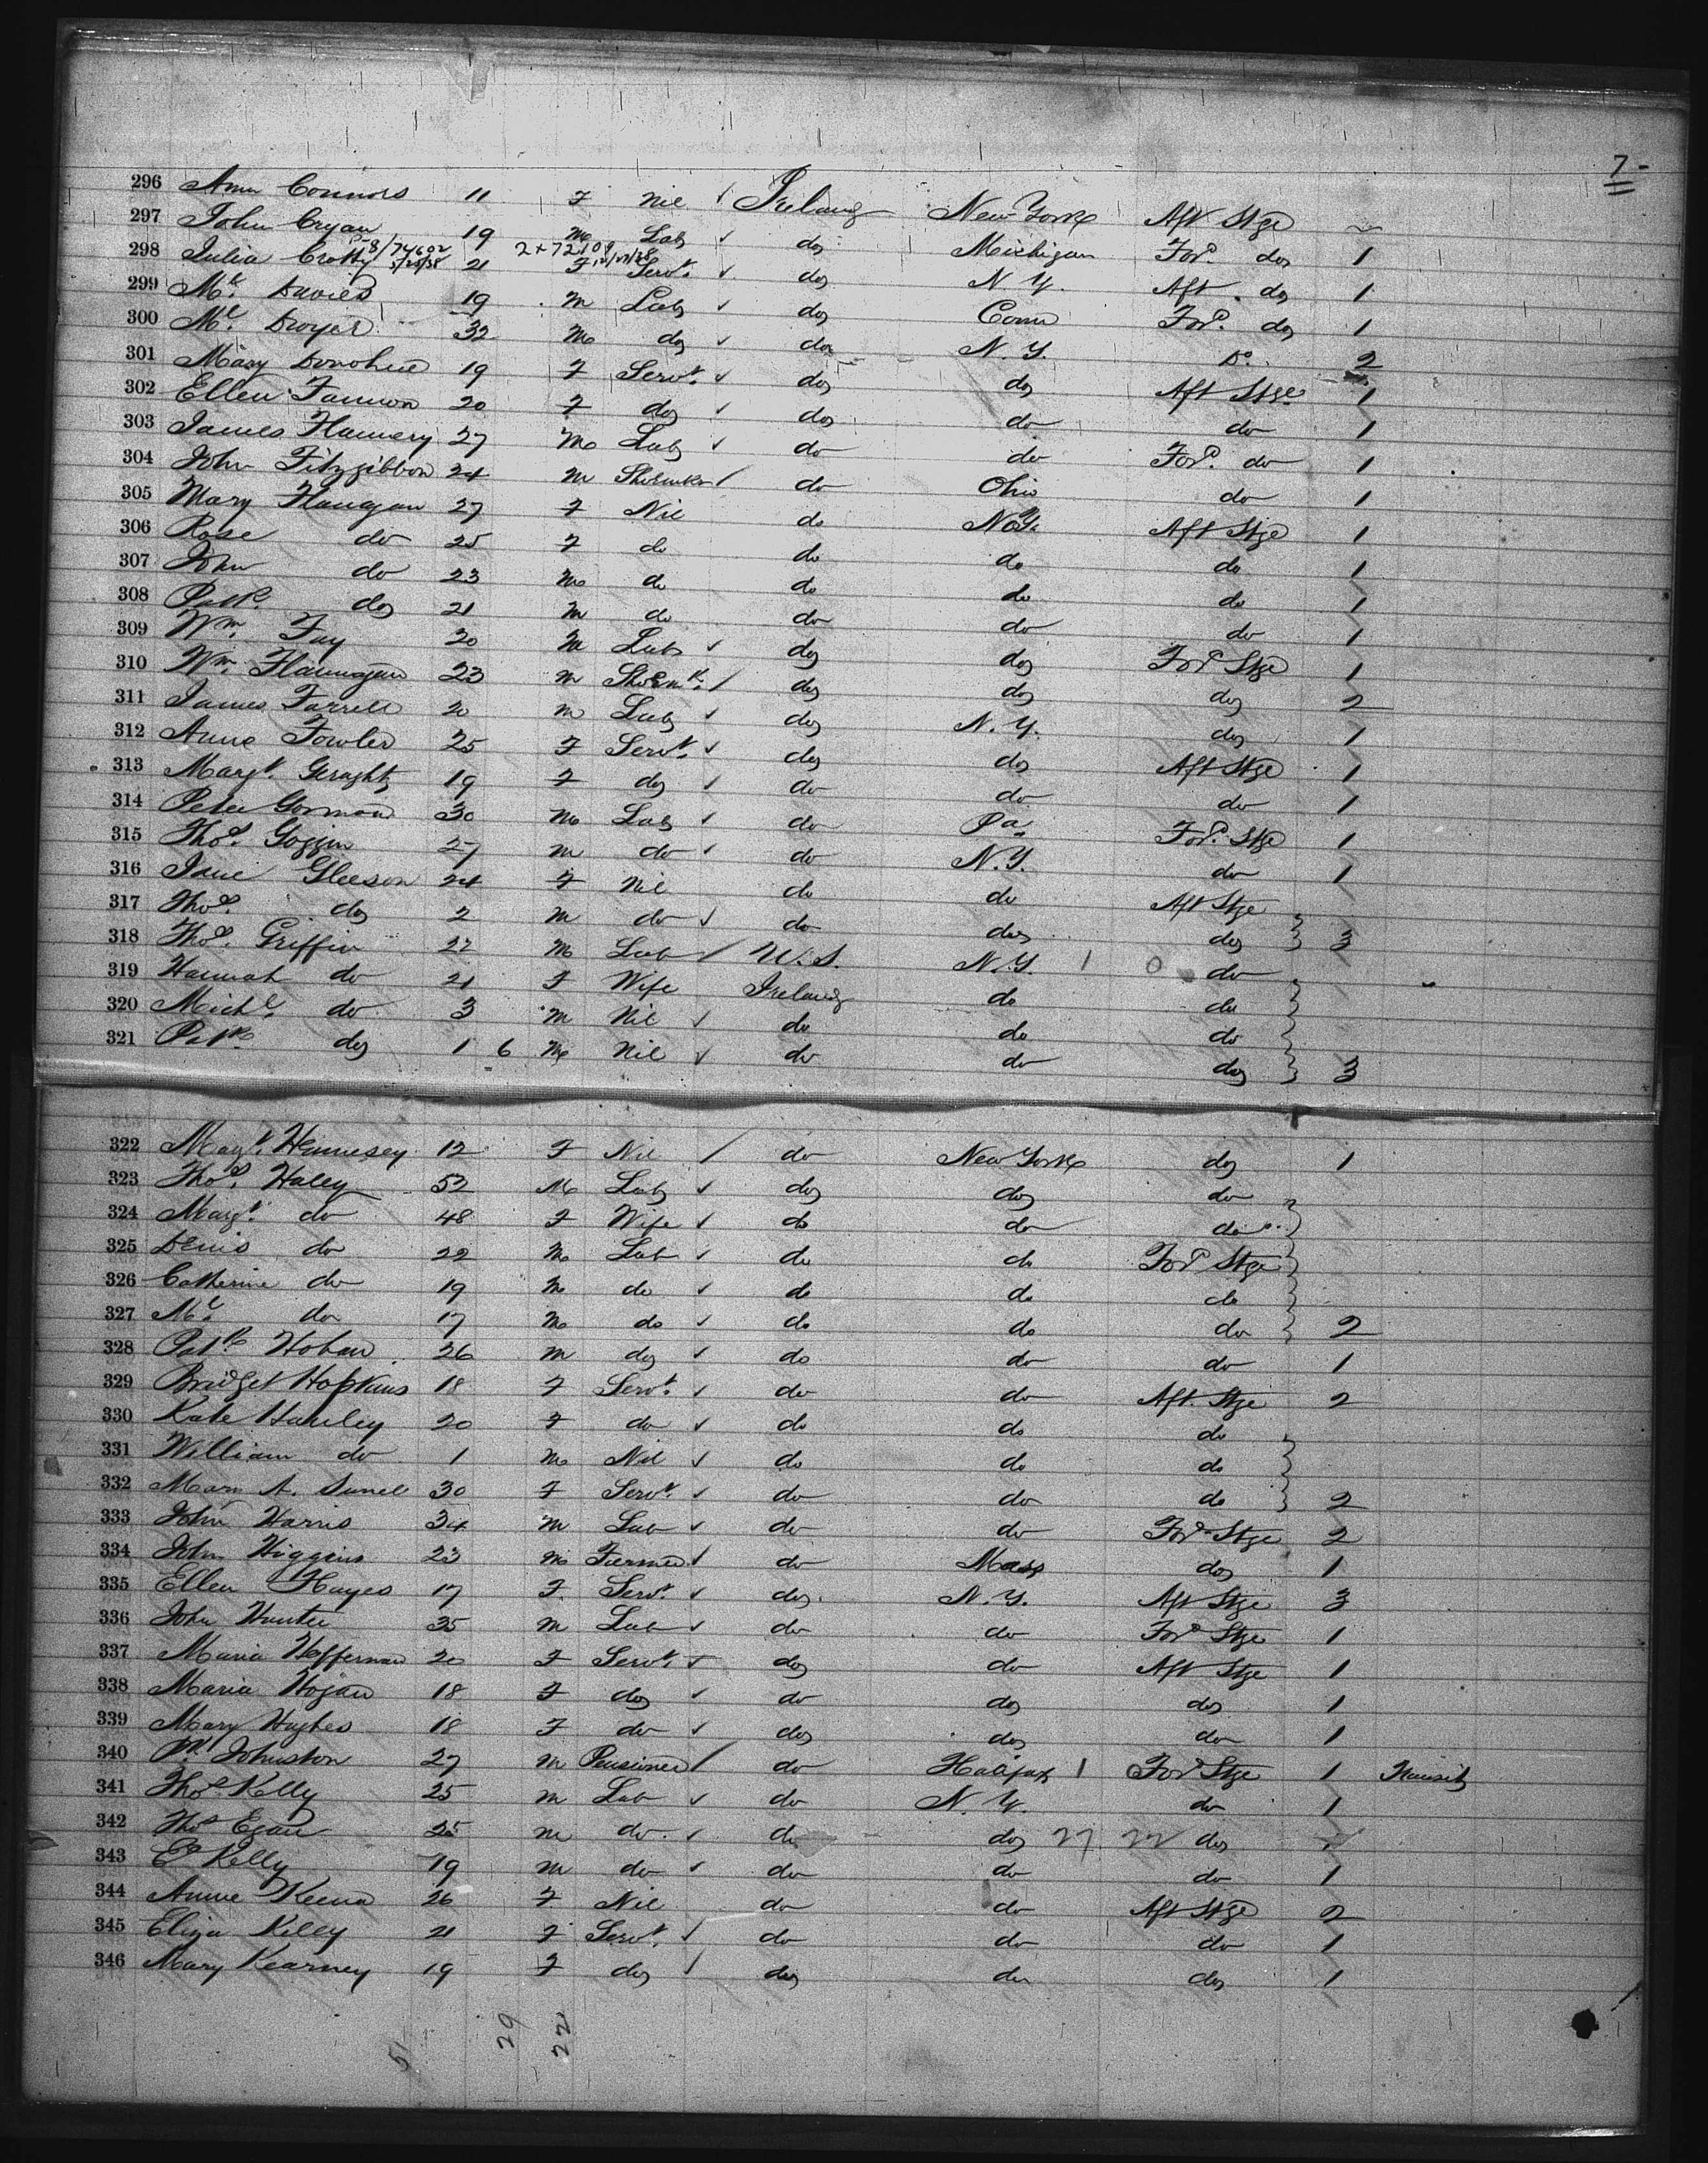 7-
296 Ann Connors 11 F Nil Ireland New York Aft Stge
297 John Cryan 19 M Lab do Michigan Ford do 1
298 Julia Crotty 21 F Servt do N.Y. Aft do 1
299 Ml. Davies 19 M Lab do Conn Ford do 1
300 Ml. Dwyer 32 M do do N.Y. Do 2
301 Mary Donohue 19 F Servt. do do Aft Stge 1
302 Ellen Fannon 20 F do do do do 1
303 James Flannery 27 M Lab do do Ford. do 1
304 John Fitzgibbon 24 M do Ohio do 1
305 Mary Flanagan 27 F Nil do N.Y. Aft Stge 1
306 Rose do 25 F do do do do 1
307 John do 23 M do do do do 1
308 Patk. do 21 M do do do do 1
309 Wm. Fay 20 M Lab do do Ford Stge 1
310 Wm. Flannagan 23 M Shoemr. do do do 2
311 James Farrell 20 M Lab do N.Y. do 1
312 Anne Fowler 25 F Servt. do do Aft Stge 1
313 Margt. Geraghty 19 F do do do do 1
314 Peter Gorman 30 M Lab do Pa Ford. Stge 1
315 Thos. Goggin 27 M do do N.Y. do 1
316 Jane Gleeson 24 F Nil do do Aft Stge
317 Thos. do 2 M do do do do 3
318 Thos. Griffin 22 M Lab U.S. N.Y. 1 0 do
319 Hannah do 21 F Wife Ireland do do
320 Michl. do 3 M Nil do do do
321 Patk do 1 6 M Nil do do do 3
322 Margt. Hennesey 12 F Nil do New York do 1
323 Thos. Haley 52 M Lab do do do
324 Margt. do 48 F Wife do do do
325 Denis do 22 M Lab do do Ford Stge
326 Catherine do 19 M do do do do
327 Ml. do 17 M do do do do 2
328 Patk Hoban 26 M do do do do 1
329 Bridget Hopkins 18 F Servt. do do Aft. Stge 2
330 Kate Hanley 20 F do do do do
331 William do 1 M Nil do do do
332 Mary A. 30 F Servt. do do do 2
333 John Harris 34 M Lab do do Ford Stge 2
334 John Higgins 23 M Farmer do Mass do 1
335 Ellen Hayes 17 F. Servt. do. N.Y. Aft Stge 3
336 John Hunter 35 M Lab do do Ford Stge 1
337 Maria Heffernan 20 F Servt. do do Aft Stge 1
338 Maria Hogan 18 F do do do do 1
339 Mary Hughes 18 F do do do do 1
340 Johnston 27 M Pensioner do Halifax 1 Ford Stge 1 Transit
341 Thos Kelly 25 M Lab do N.Y. do 1
342 Thos Egan 25 M do. do do 27 22 do
343 Ed Kelly 19 M do do do do 1
344 Annie Keena 26 F Nil do do Aft Stge 2
345 Eliza Kelly 21 F Servt. do do do 1
346 Mary Kearney 19 F do do do do 1
51 29 22